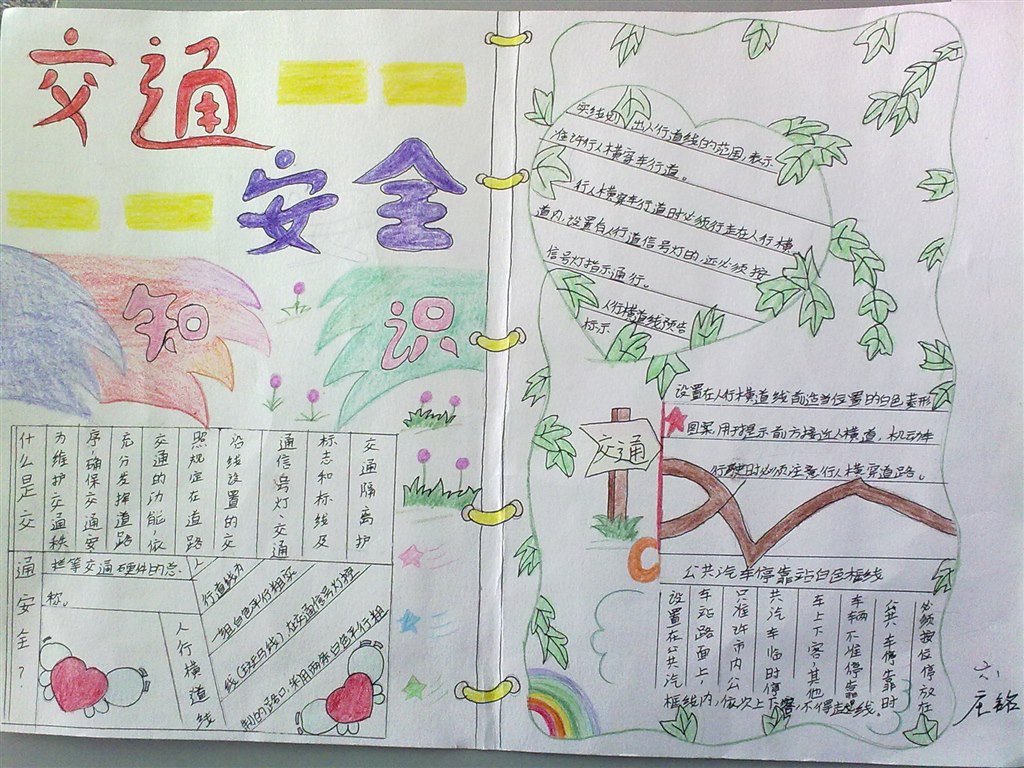 交通
安全
知识
什么是交通安全？
为维护交通秩
序，确保交通安
充分发挥道路
交通的功能，依
照规定在道路
沿线设置的交
通信号灯、交通
标志和标线及
交通隔离护
栏等交通硬件的总
称。
人行横道线
行道线为
一组白色平行粗实
线（斑马线）在交通信号灯控
制的路口，采用两条白色平行粗
实线划 出人行道线的范围，表示
准许行人横穿车行道。
行人横穿车行道时必须行走在人行横
道内，设置有人行道信号灯的，还必须按
信号灯指示通行。
人行横道线预告
标示
设置在人行横道线前适当位置的白色菱形
图案，用于提示前方接近人横道，机动车
行驶时必须注意行人横穿道路。
交通
公共汽车停靠站白色框线
设置在公共汽
车站路面上，
只准许市内公
共汽车临时停
车上下客，其他
车辆不准停靠
公共车停靠时
必须按位停放在
框线内，依次上下客，不得越线。
六
庄铭